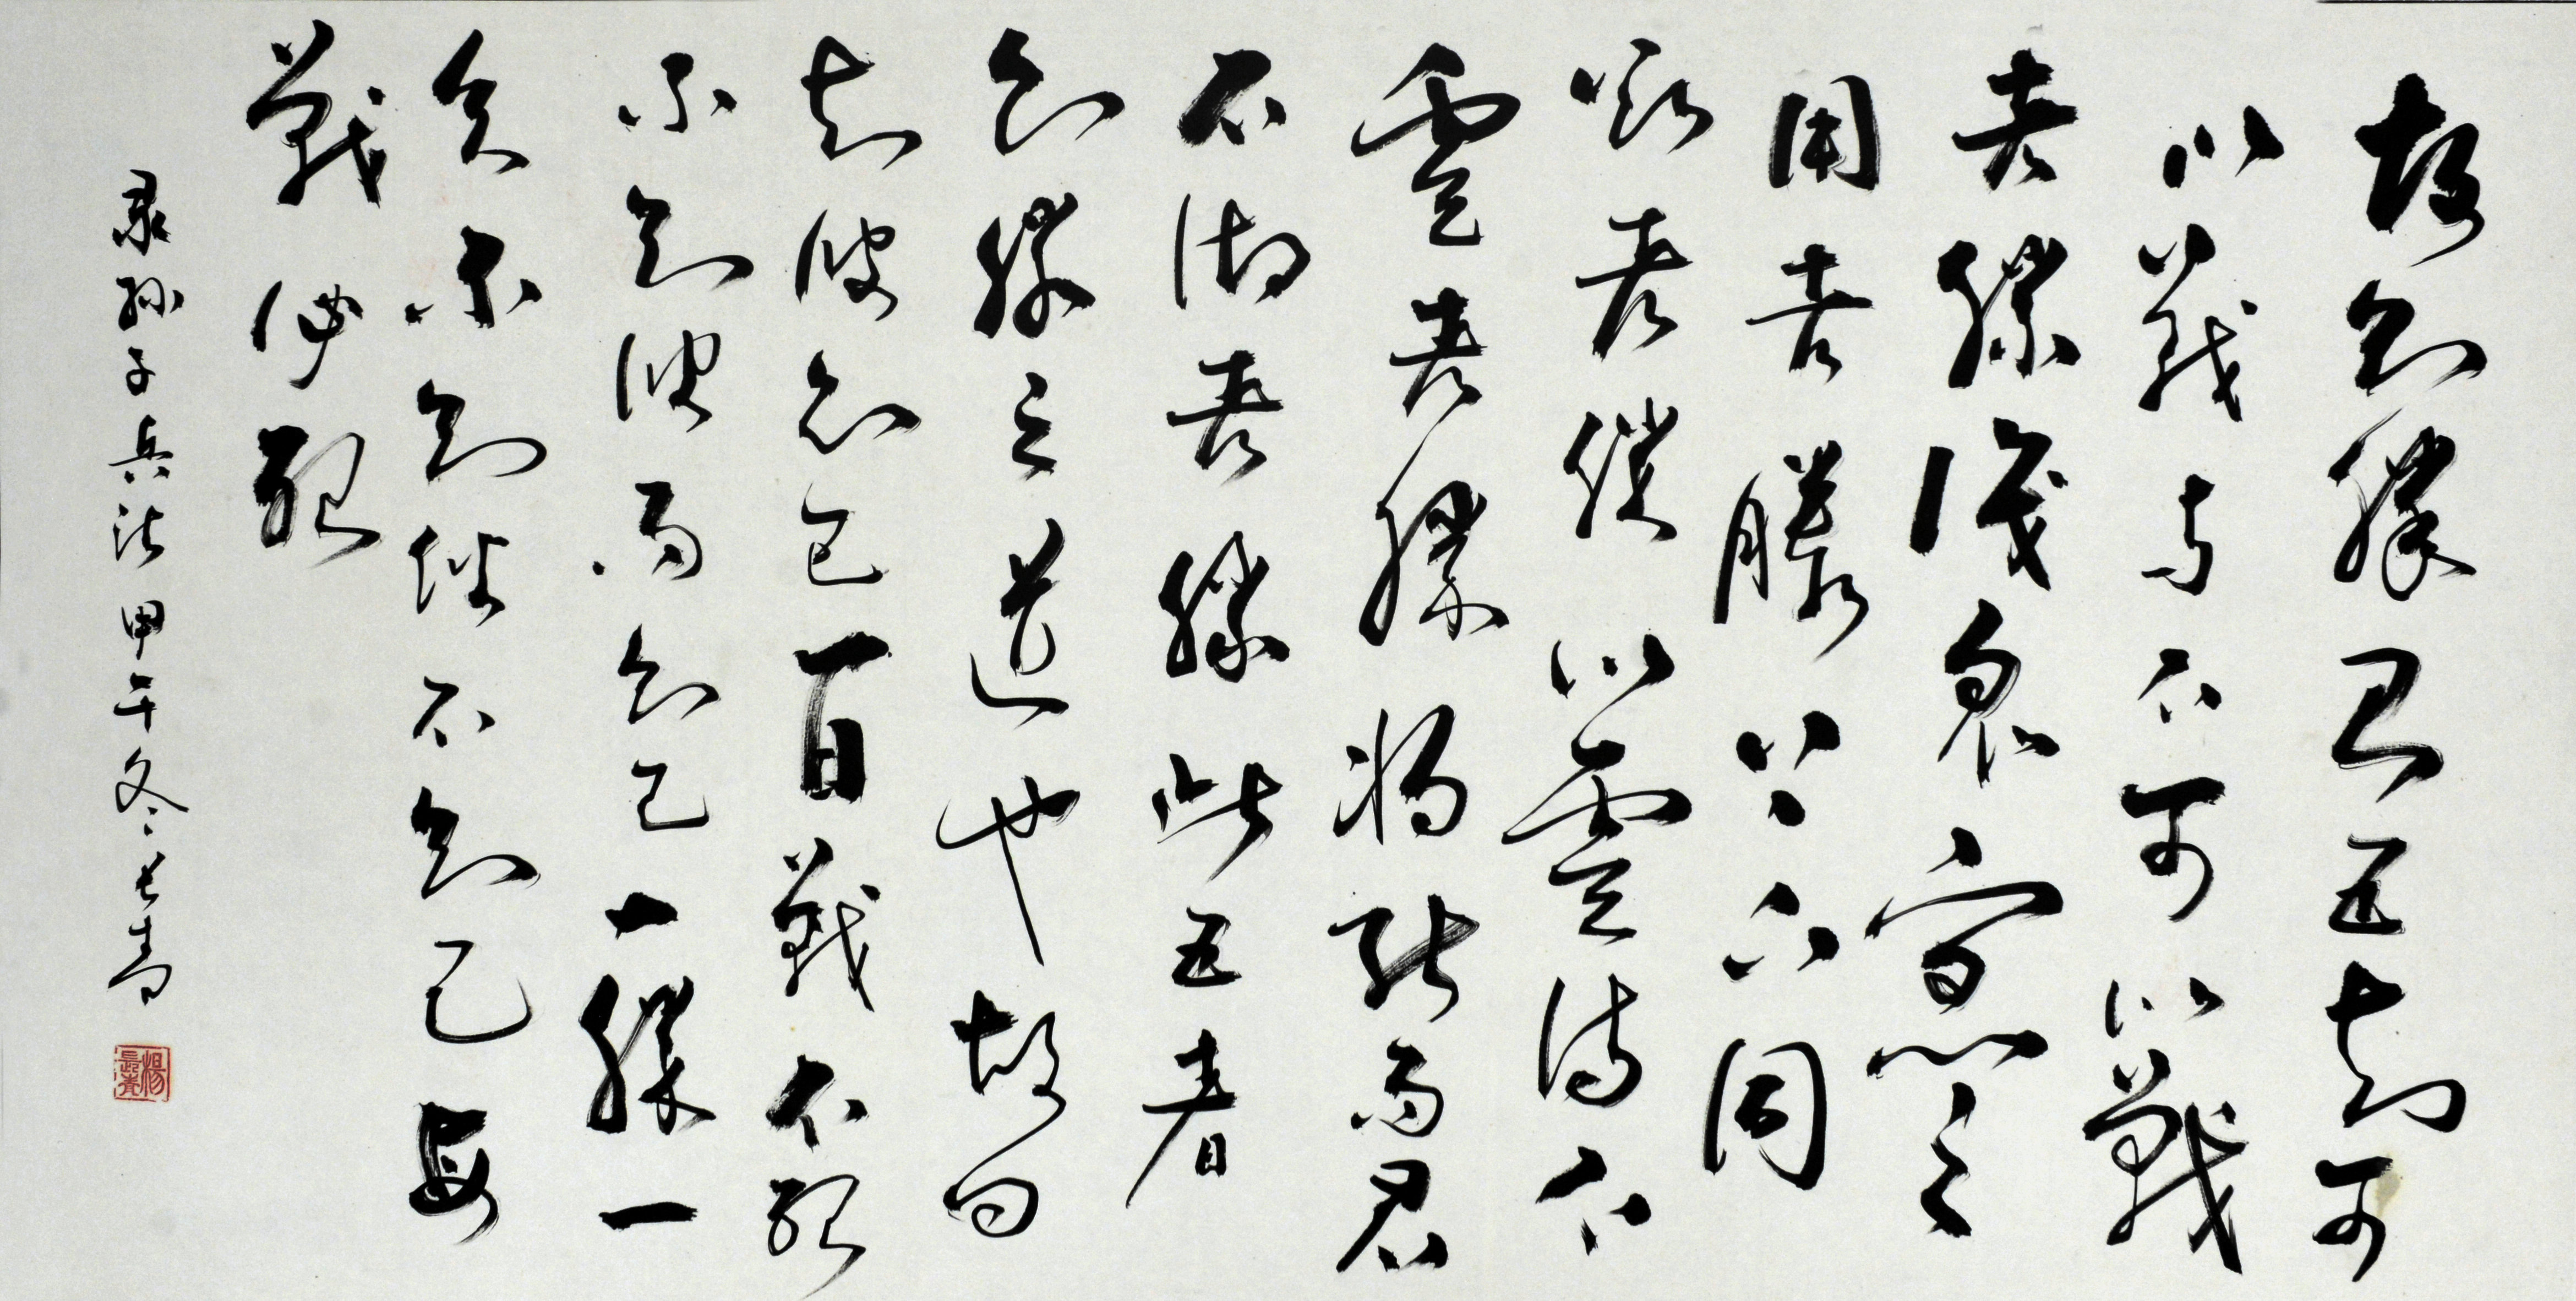 故知勝有五知可
以戰與不可以戰
者勝識眾寡之
用者勝上下同
欲者勝以虞待不
虞者勝將能而君
不御者勝此五者
知勝之道也故曰
知彼知己百戰不殆
不知彼而知己一勝一
負不知彼不知己每
戰必殆
录孙子兵法甲午冬长青
楊長青